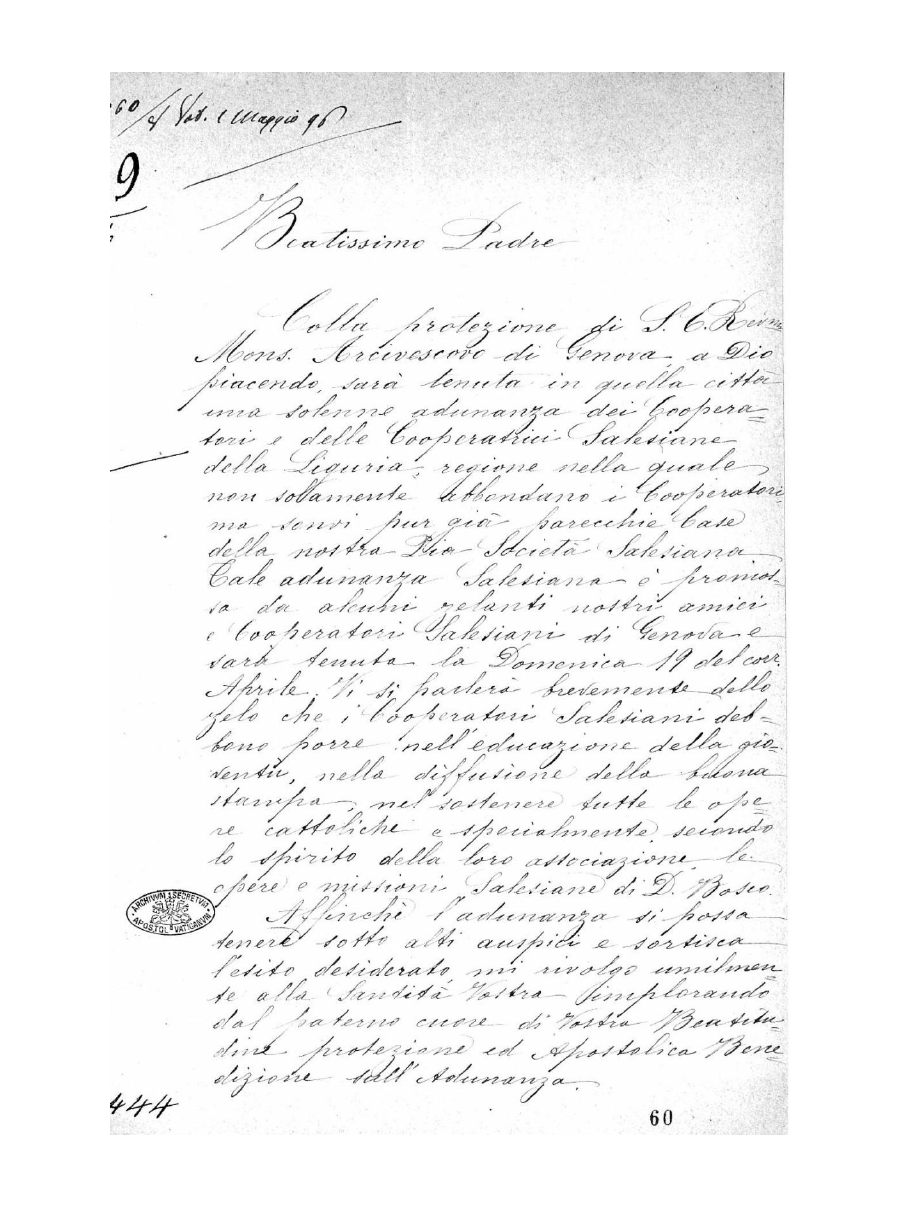 60
Vat. 1 Maggio 96
9
Beatissimo Padre
Colla protezione di S. E. Revma
Mons. Arcivescovo di Genova, a Dio
piacendo, sarà tenuta in quella città
una solenne adunanza dei Coopera=
tori e delle Cooperatrici Salesiane
della Liguria, regione nella quale
non solamente abbondano i Cooperatori
ma sonvi pur già parecchie Case
della nostra Pia Società Salesiana
Tale adunanza Salesiana è promos=
sa da alcuni zelanti nostri amici
e Cooperatori Salesiani di Genova e
sarà tenuta la Domenica 19 del corr.
Aprile. Vi si parlerà brevemente dello
zelo che i Cooperatori Salesiani deb=
bono porre nell'educazione della gio=
ventù, nella diffusione della buona
stampa, nel sostenere tutte le ope=
re cattoliche e specialmente, secondo
lo spirito della loro associazione, le
opere e missioni Salesiane di D. Bosco.
Affinchè l'adunanza si possa
tenere sotto alti auspici e sortisca
l'esito desiderato, mi rivolgo umilmen=
te alla Santità Vostra implorando
dal paterno cuore di Vostra Beatitu=
dine protezione ed Apostolica Bene=
dizione sull'Adunanza.
ARCHIVVM SECRETVM APOSTOL VATICANVM
444
60